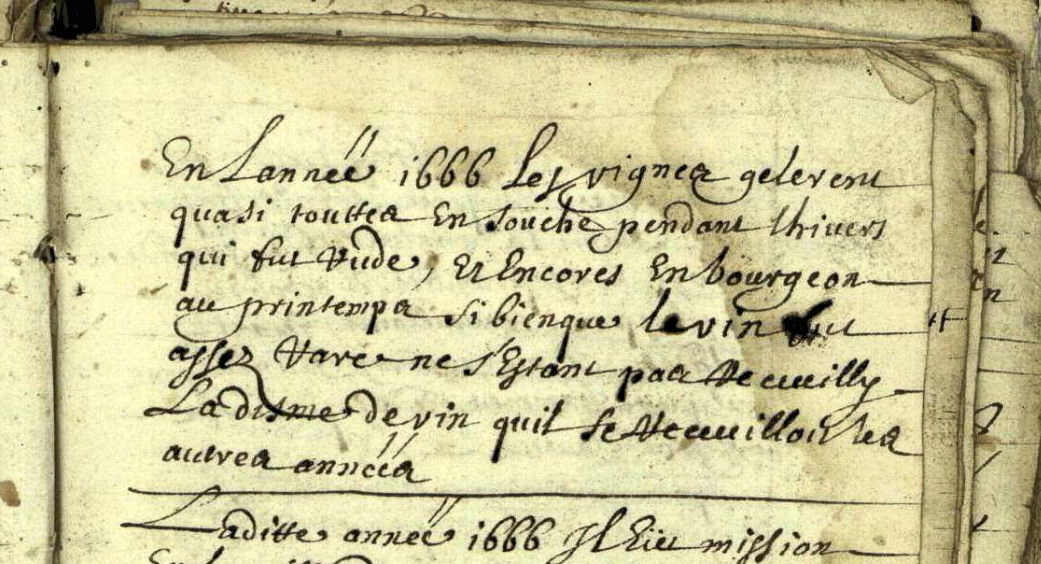 En Lannéé 1666 Les vignes gelerent
quasi touttes En souche pendant lhivers
qui fut rude, Et Encores En bourgeon
au printemps si bienque le vin fut
assez rare ne s'Estant pas recueilly
La disme de vin quil se recueilloit les
autres annéés
Laditte annéé 1666 Il Eut mission